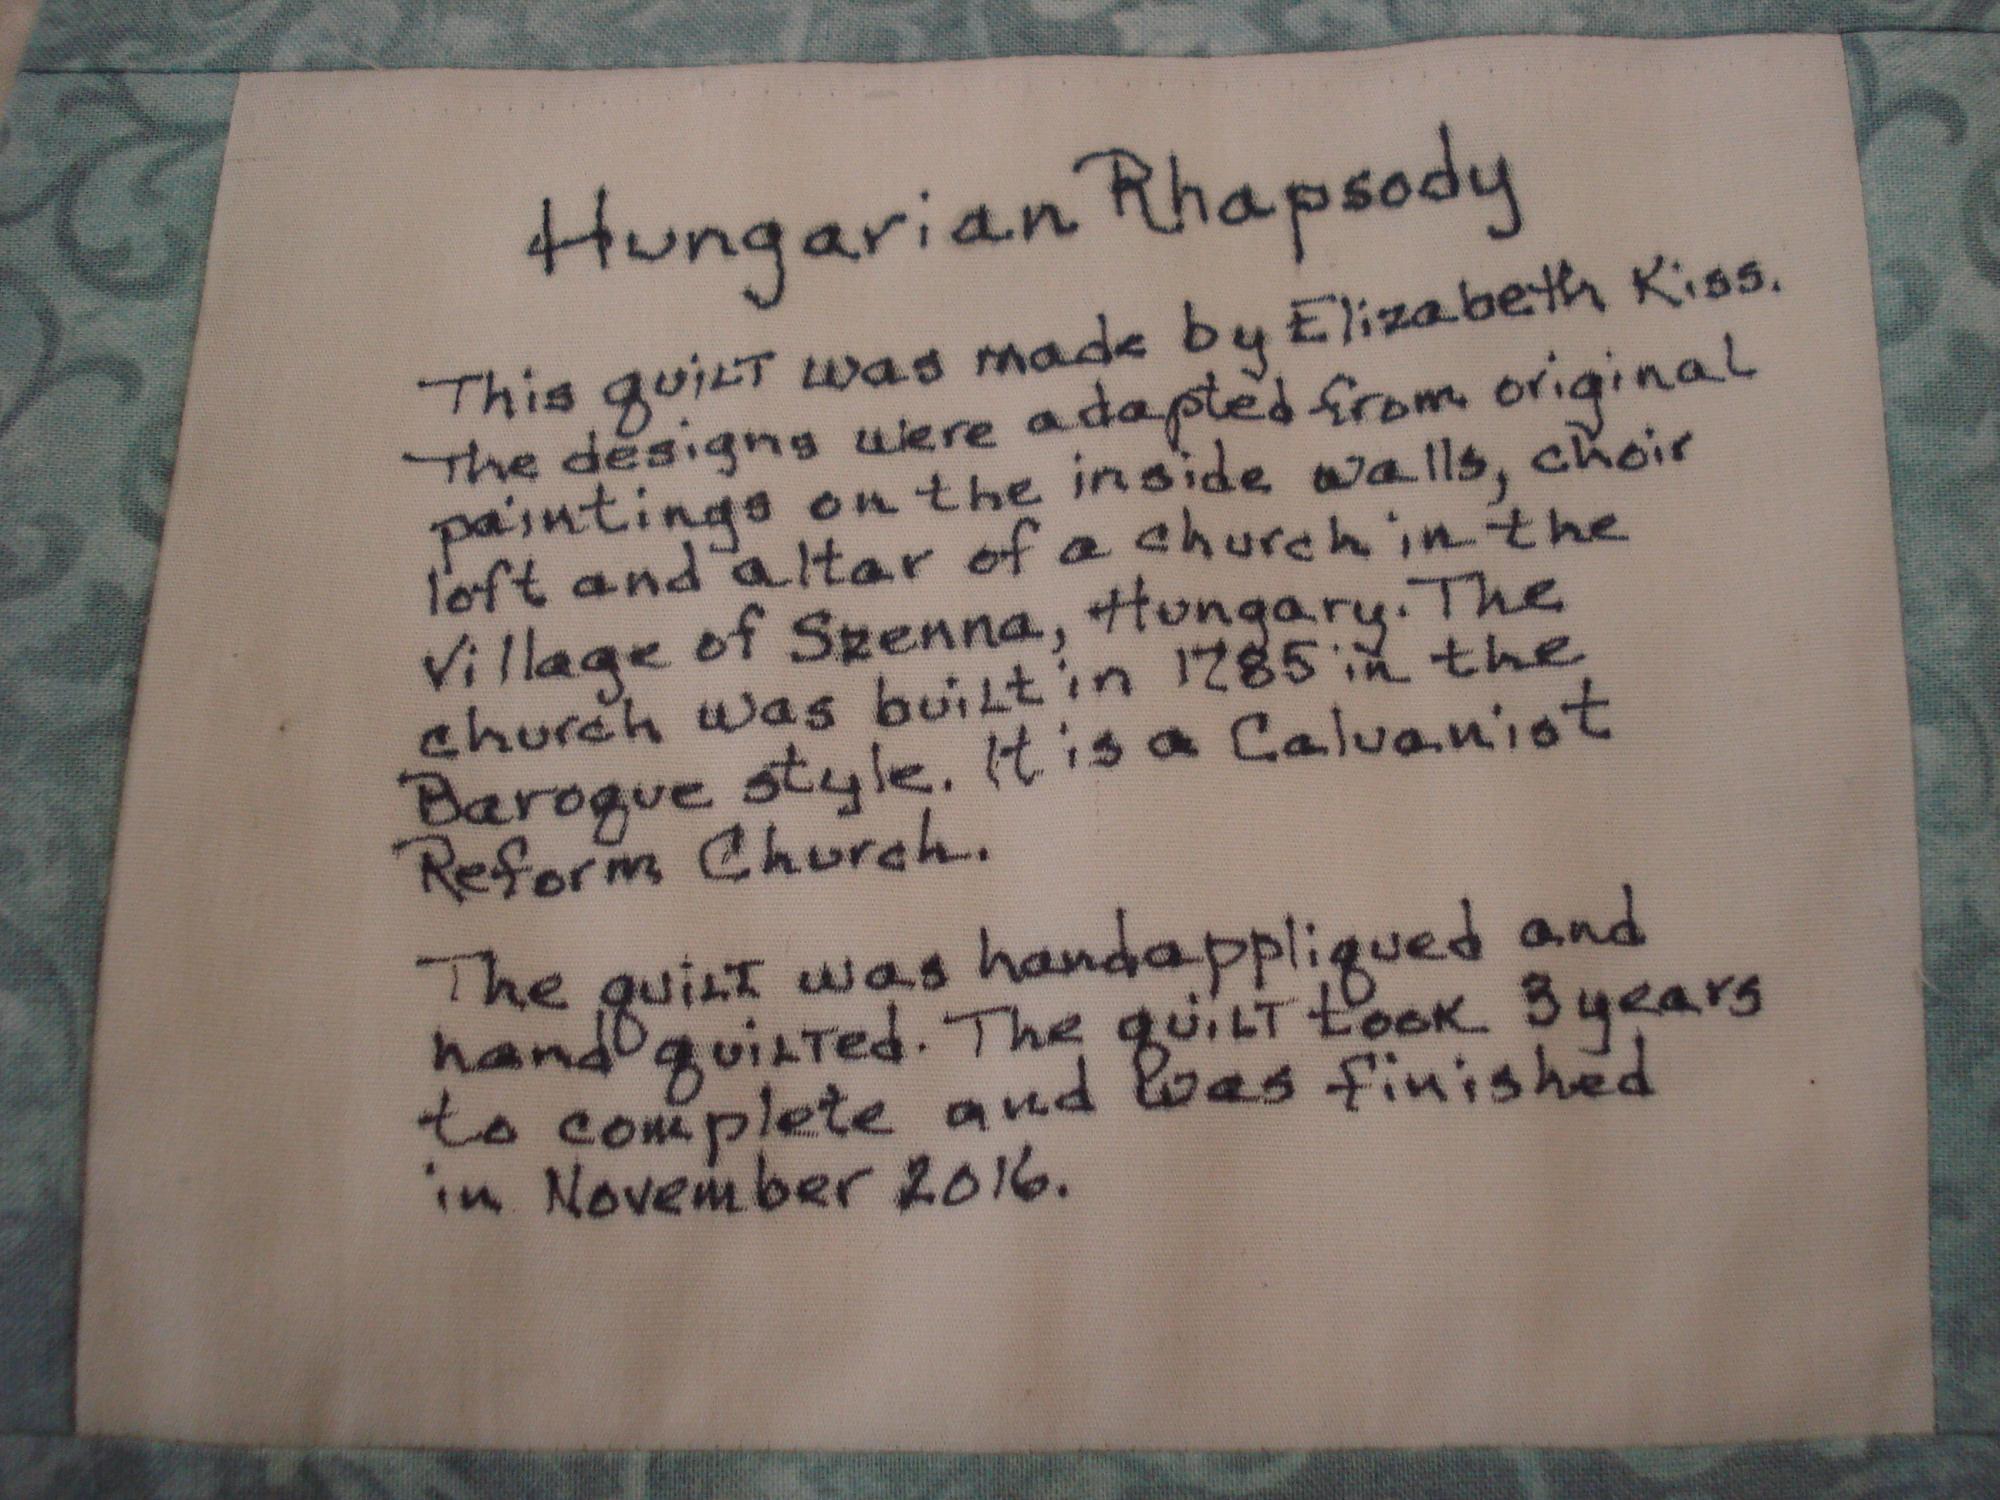 Hungarian Rhapsody
This quilt was made by Elizabeth Kiss.
The designs were adapted from original
paintings on the inside walls, choir
loft and altar of a church in the
village of Szenna, Hungary. The
church was built in 1785 in the
Baroque style. It is a Calvanist
Reform Church.
The quilt was handappliqued and
hand quilted. The quilt took 3 years
to complete and was finished
in November 2016.